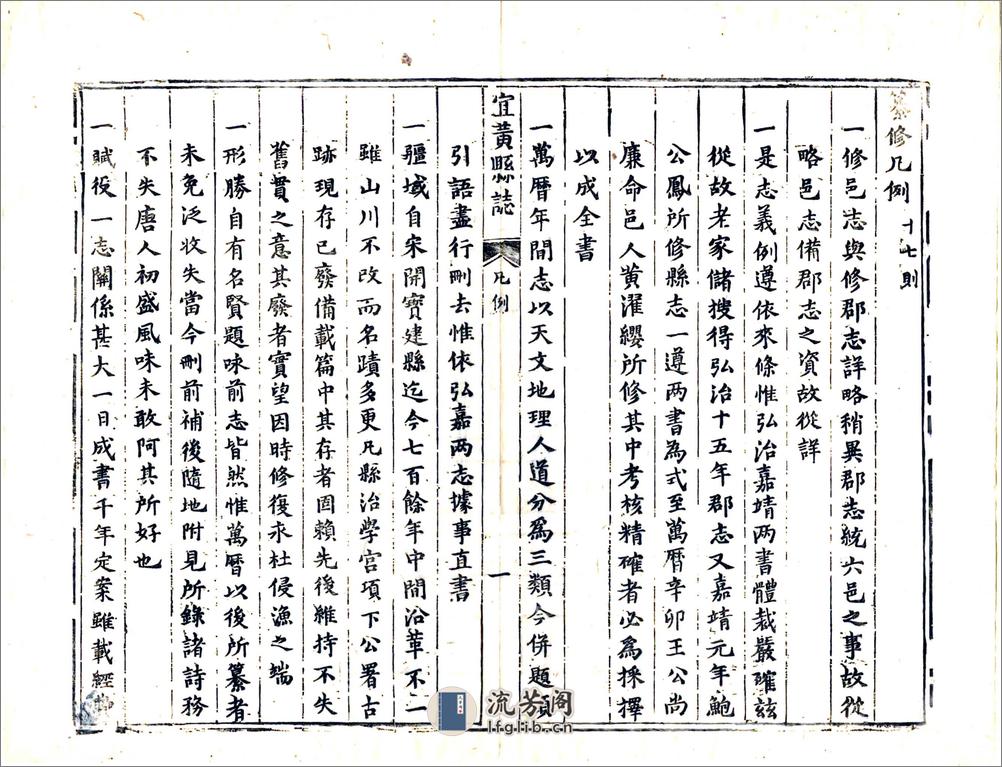 纂修凡例 十七則
一修邑志與修郡志詳略稍異郡志統六邑之事故從
略邑志備郡志之資故從詳
一是志義例遵依來條惟弘治嘉靖两書體裁嚴確玆
從故老家儲搜得弘治十五年郡志又嘉靖元年鮑
公鳳所修縣志一遵两書為式至萬曆辛卯王公尚
廉命邑人黄濯纓所修其中考核精確者必為採擇
以成全書
一萬曆年間志以天文地理人道分為三類今併題項
引語盡行刪去惟依弘嘉两志據事直書
宜黃縣誌 凡例 一
一疆域自宋開寶建縣迄今七百餘年中間沿革不一
雖山川不改而名蹟多更凡縣治學宫項下公署古
跡現存已廢備載篇中其存者固賴先後維持不失
舊貫之意其廢者實望因時修復永杜侵漁之端
一形勝自有名賢題咏前志皆然惟萬曆以後所纂者
未免泛收失當今刪前補後隨地附見所錄諸詩務
不失唐人初盛風味未敢阿其所好也
一賦役一志關係甚大一日成書千年定案雖載經
流芳阁
lfglib.cn